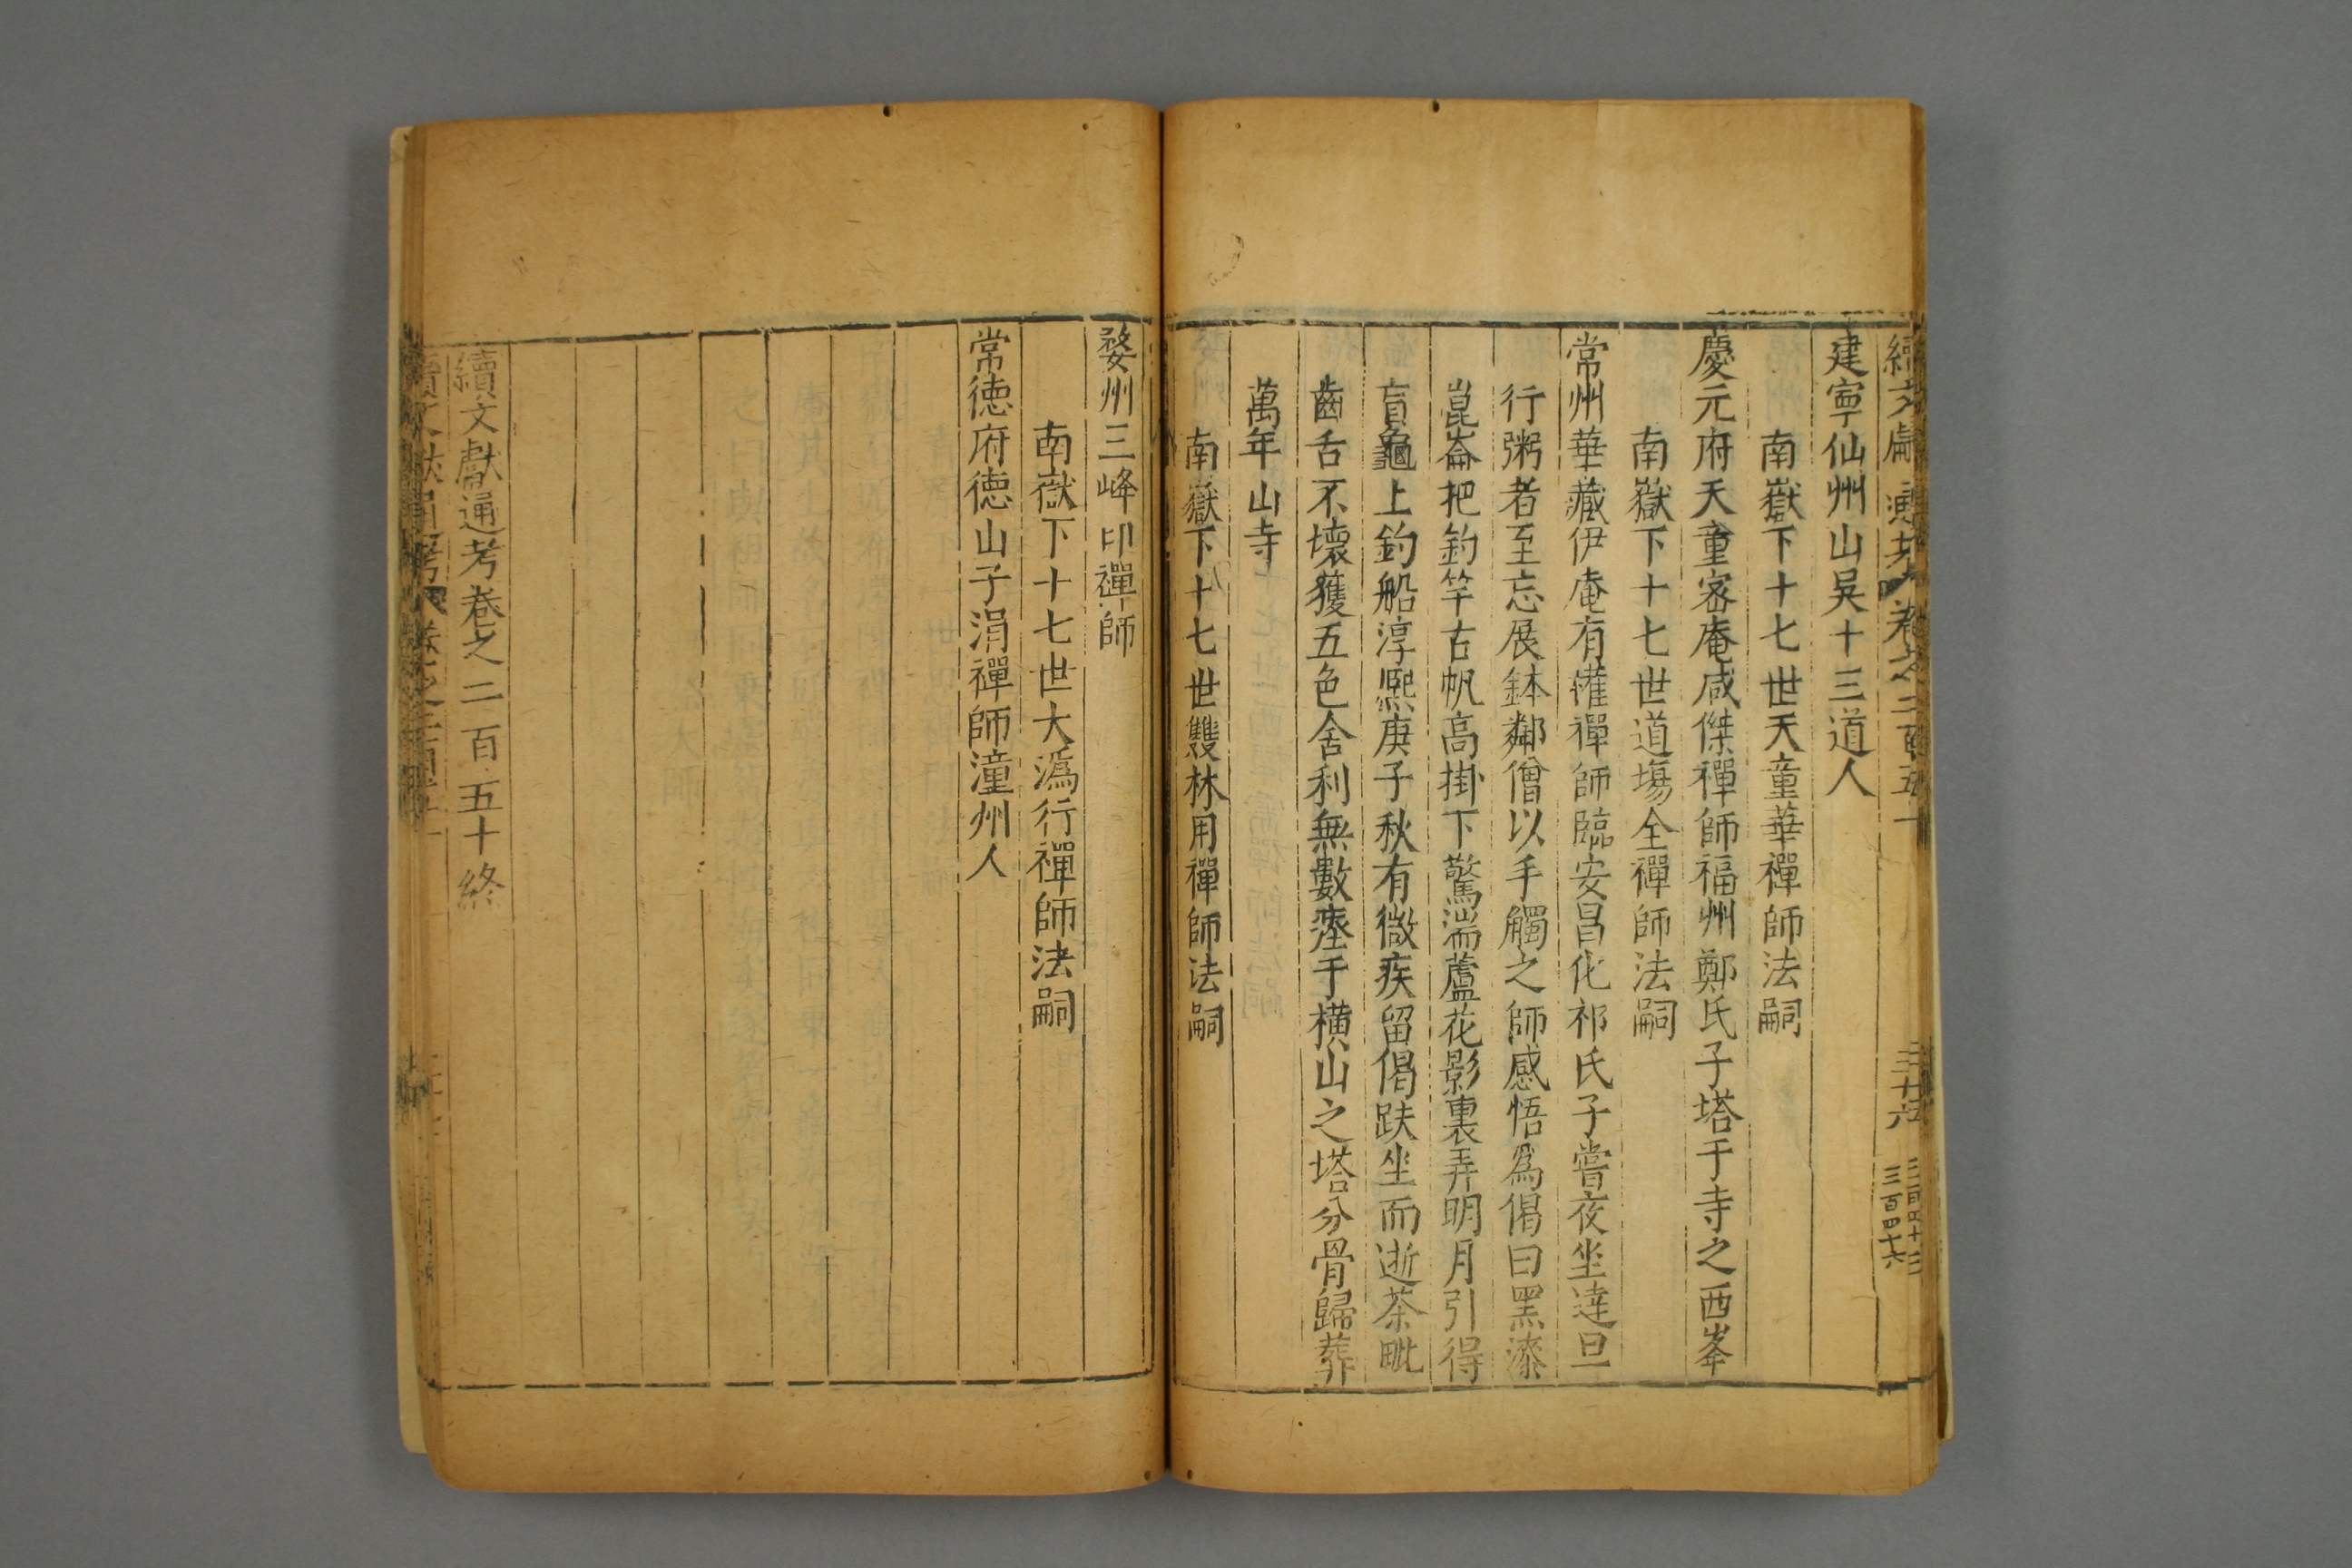 建寧仙州山吳十三道人
南嶽下十七世天童華禪師法嗣
慶元府天童密庵咸傑禪師福州鄭氏子塔于寺之西峯
南嶽下十七世道場全禪師法嗣
常州華藏伊庵有權禪師臨安昌化祁氏子嘗夜坐達旦
行粥者至忘展鉢鄰僧以手觸之師感悟為偈曰黑漆
崑崙把釣竿古帆高掛下驚湍蘆花影裏弄明月引得
盲龜上釣船淳熈庚子秋有微疾留偈趺坐而逝荼毗
齒舌不壞獲五色舍利無數瘞于橫山之塔分骨歸葬
萬年山寺
南嶽下十七世雙林用禪師法嗣
婺州三峰印禪師
南嶽下十七世大溈行禪師法嗣
常德府德山子涓禪師潼州人
續文獻通考卷之二百五十終